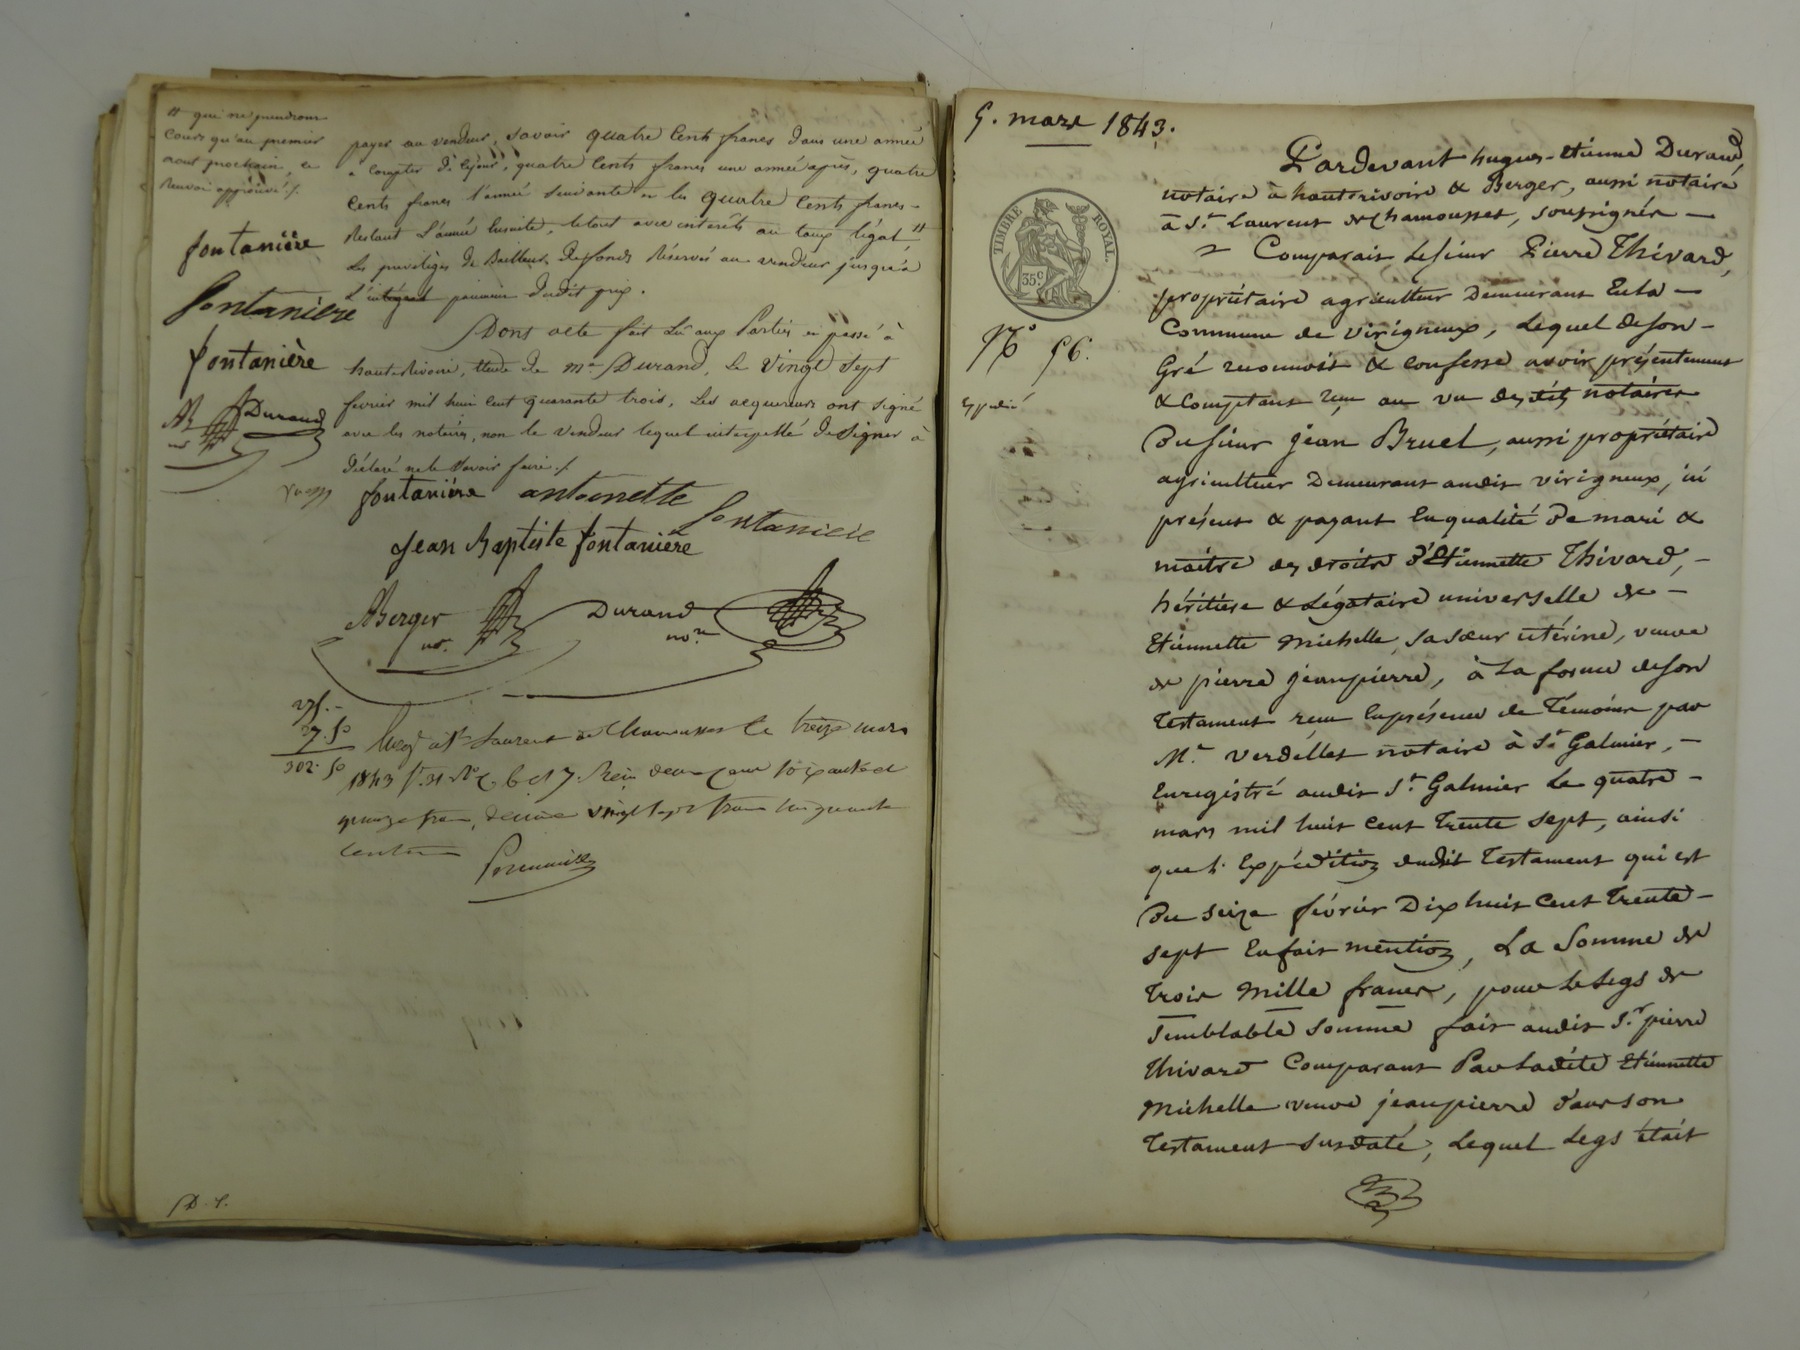 " qui ne prendront
cours qu'au premier
mars prochain, ce
Renvoi approuvé /.
fontanière
fontaniere
fontanière
Durand
payer au vendeur, savoir quatre Cents francs dans une année
a Compter de Cejour, quatre Cents francs une année après, quatre
Cents francs l'année Suivante et les quatre Cents francs -
Restant L'année Ensuite, letout avec interêts au taux légal "
Les privilèges de Bailleur defonds Réservés au vendeur jusqu'a
L'intégral paiement dudit prix.
Dont acte fait Lu aux Parties et passé à
haute-Rivoire, Etude de Me Durand, Le Vingt Sept
fevrier mil huit Cent quarante trois, Les acquereurs ont signé
avec les notaires, non le Vendeur lequel interpellé de Signer à
déclaré ne le Savoir faire /.
fontanière antoinette
fontaniere
Jean Baptiste fontanière
ABerger
no.
Durand
nore
275.-
27.50
302.50
Enregé à St Laurent de Chamousset le treize mars
1843 fo 31 Ro C. 6 et 7. Reçu deux Cent Soixante et
quinze francs, décime vingt sept francs Cinquante
Centimes
D. L.
5. mars 1843.
TIMBRE ROYAL.
35c
No 56.
Expedié
Pardevant hugues-Etienne Durand,
notaire à haute-rivoire & Berger, aussi notaire
à St Laurent de Chamousset, soussignés -
Comparait Lesieur Pierre Thivard,
propriétaire agriculteur Demeurant En la -
Commune de Virigneux, Lequel deson -
Gré reconnoit & Confesse avoir présentement
& Comptant reçu au vu desdits notaires
Du sieur jean Bruel, aussi propriétaire
agriculteur Demeurant audit virigneux, ici
présent & payant Enqualité de mari &
maitre des droits d'Etiennette Thivard, -
héritière & Légataire universelle de -
Etiennette Michelle, sa sœur utérine, veuve
de pierre jeanpierre, à La forme deson
Testament reçu Enprésence de Témoins par
Me Verdellet notaire à St Galmier, -
Enregistré audit St Galmier Le quatre -
mars mil huit Cent Trente Sept, ainsi
que L'Expédition dudit Testament qui est
Du seize février Dix huit Cent Trente -
sept En fait mention, La Somme de
Trois Mille francs, pour Le Legs de
Semblable Somme fait audit Sr pierre
Thivard Comparant Par Ladite Etiennette
Michelle veuve jeanpierre dans son
Testament Susdaté, Lequel Legs était